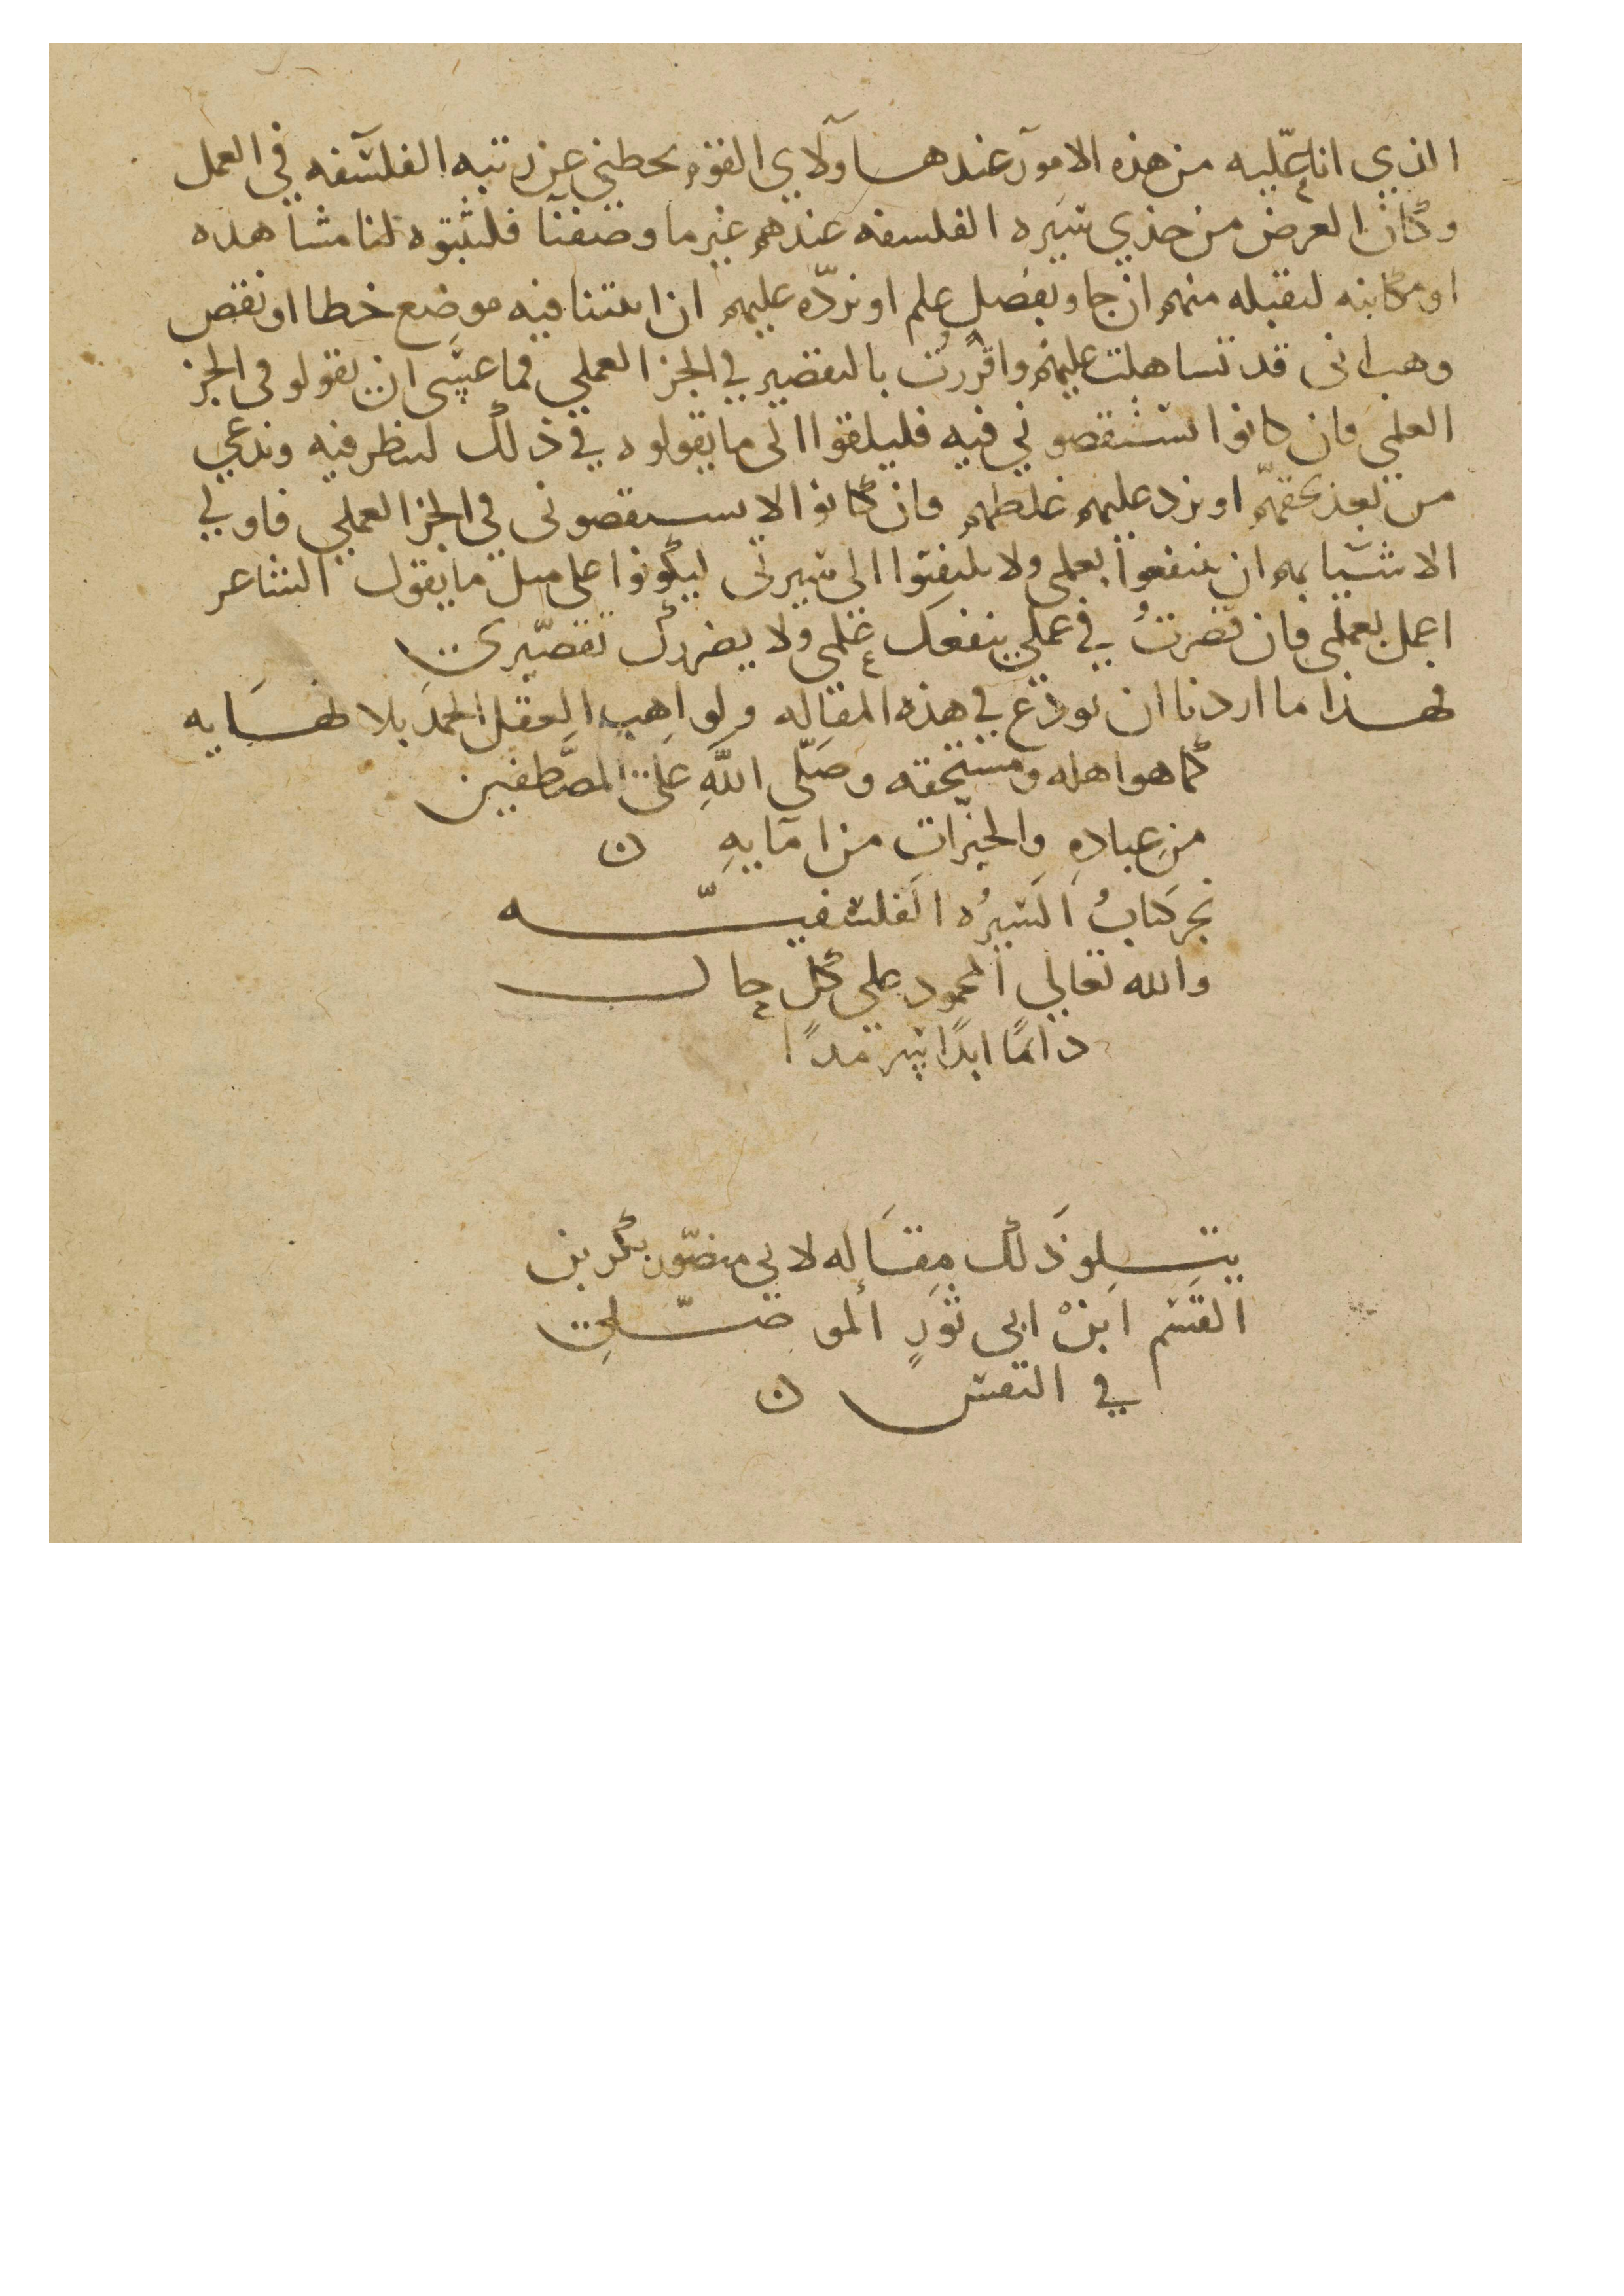 الذي انا عليه من هذه الامور عند هاولاي القوم يحطني عن رتبه الفلسفه في العمل
وكان الغرض من حذي سيره الفلسفه عندهم غير ما وصفنا فليثبتوه لنا مشاهده
او مكاتبه لنقبله منهم ان جاو بفضل علم او نرده عليهم ان اثبتنا فيه موضع خطا او نقص
وهب انى قد تساهلت عليهم واقررت بالتقصير في الجز العملي فما عسى ان يقولو في الجز
العلمي فان كانوا استنقصوني فيه فليلقوا الى ما يقولوه في ذلك لننظر فيه ونذعن
من بعد بحقهم او نرد عليهم غلطهم فان كانوا لا يستنقصونى في الجز العلمي فاولي
الاشيا بهم ان ينتفعوا بعلمى ولا يلتفتوا الى سيرتى ليكونوا على مثل ما يقول الشاعر
اعمل بعلمى فان قصرت في عملي ينفعك علمى ولا يضررك تقصيرى
فهذا ما اردنا ان نودع في هذه المقاله ولواهب العقل الحمد بلا نهايه
كما هو اهله ومستحقه وصلى الله على المصطفين
من عباده والخيرات من امايه ن
نجز كتاب السيره الفلسفيه
والله تعالى المحمود على كل حال
دائما ابدا سرمدا
يتلو ذلك مقاله لابي منصور بكر بن
القسم ابن ابى ثور الموصلى
في النفس ن